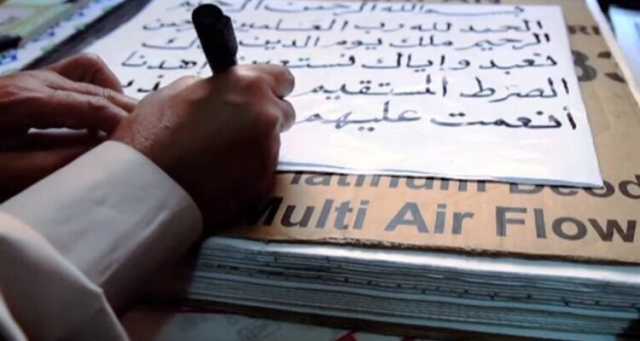 بسم الله الرحمن الرحيم
الحمد لله رب العلمين
الرحيم ملك يوم الدين
نعبد و اياك نستعين اهدنا
الصرط المستقيم
أنعمت عليهم
Platinum Deod
Multi Air Flow